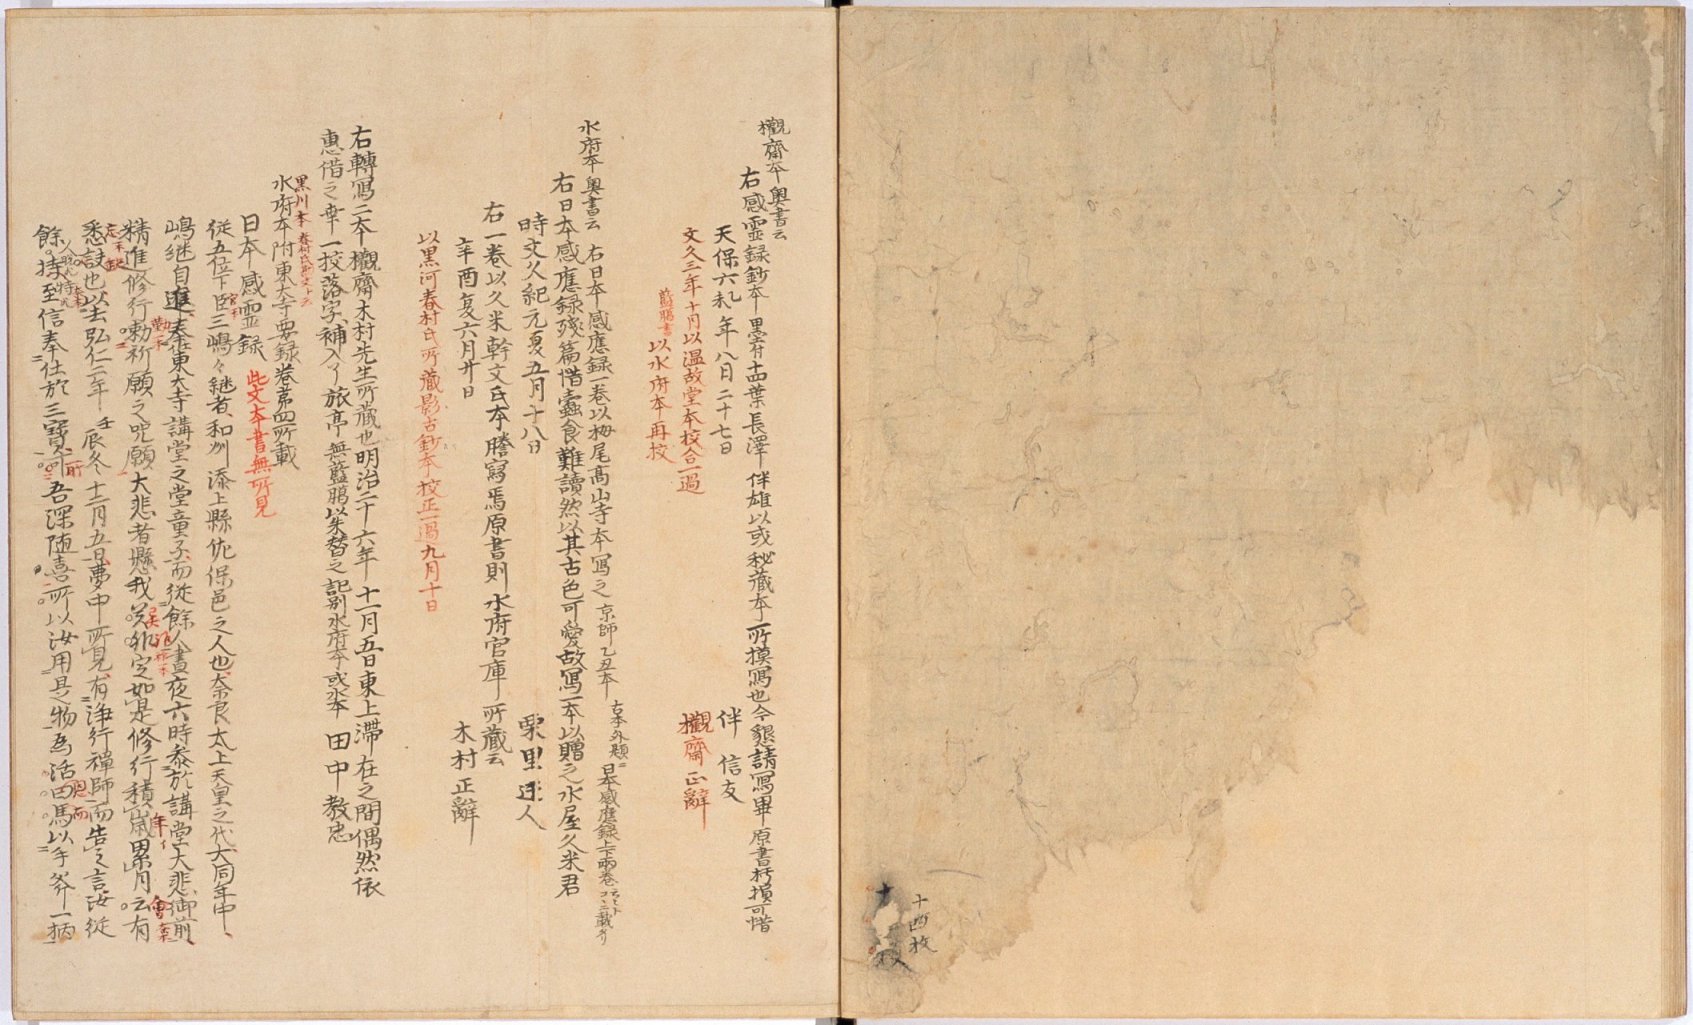 十四枚
十
枚
欟齋本奥書云
右感霊録鈔本墨付十四葉長澤伴雄以或秘蔵本所摸寫也今懇請寫畢原書朽損可惜
天保六乙未年八月二十七日 伴信友
文久三年十月以温故堂本校合一過 欟齋正辭
藍鵑書以水府本再校
水府本奥書云 右日本感應録一巻以栂尾高山寺本写之 京師乙丑本 古本外題ニ日本感應録上下両巻
右日本感應録残篇惜蠧食難讀然以其古色可愛故寫一本以贈之水屋久米君
時文久紀元夏五月十八日 栗里迂人
右一巻以久米幹文氏本謄寫焉原書則水府官庫所蔵云
辛酉夏六月廿日 木村正辭
以黒河春村氏所蔵影古鈔本校正一過九月十日
右轉寫二本欟齋木村先生所蔵也明治二十六年十一月五日東上滞在之間偶然依
惠借之幸一校落字補入了旅亭無藍鵑以朱替之記別水府本或水本 田中教忠
黒川本
水府本附東大寺要録巻第四所載
日本感霊録 此文本書無所見
従五位下臣三嶋々継者和州添上縣佐保邑之人也奈良太上天皇之代大同年中
嶋継自進奉仕東大寺講堂之堂童子而従餘人晝夜六時参於講堂大悲御前
精進修行勅祈願之呪願大悲者懸我 定如是修行積歳累月云有
悉設也以去弘仁二年壬辰冬十二月五日夢中所見有浄行禅師而告之言汝従
餘持至信奉仕於三寳 吾深随喜所以汝用是物為活曰焉以手斧一柄